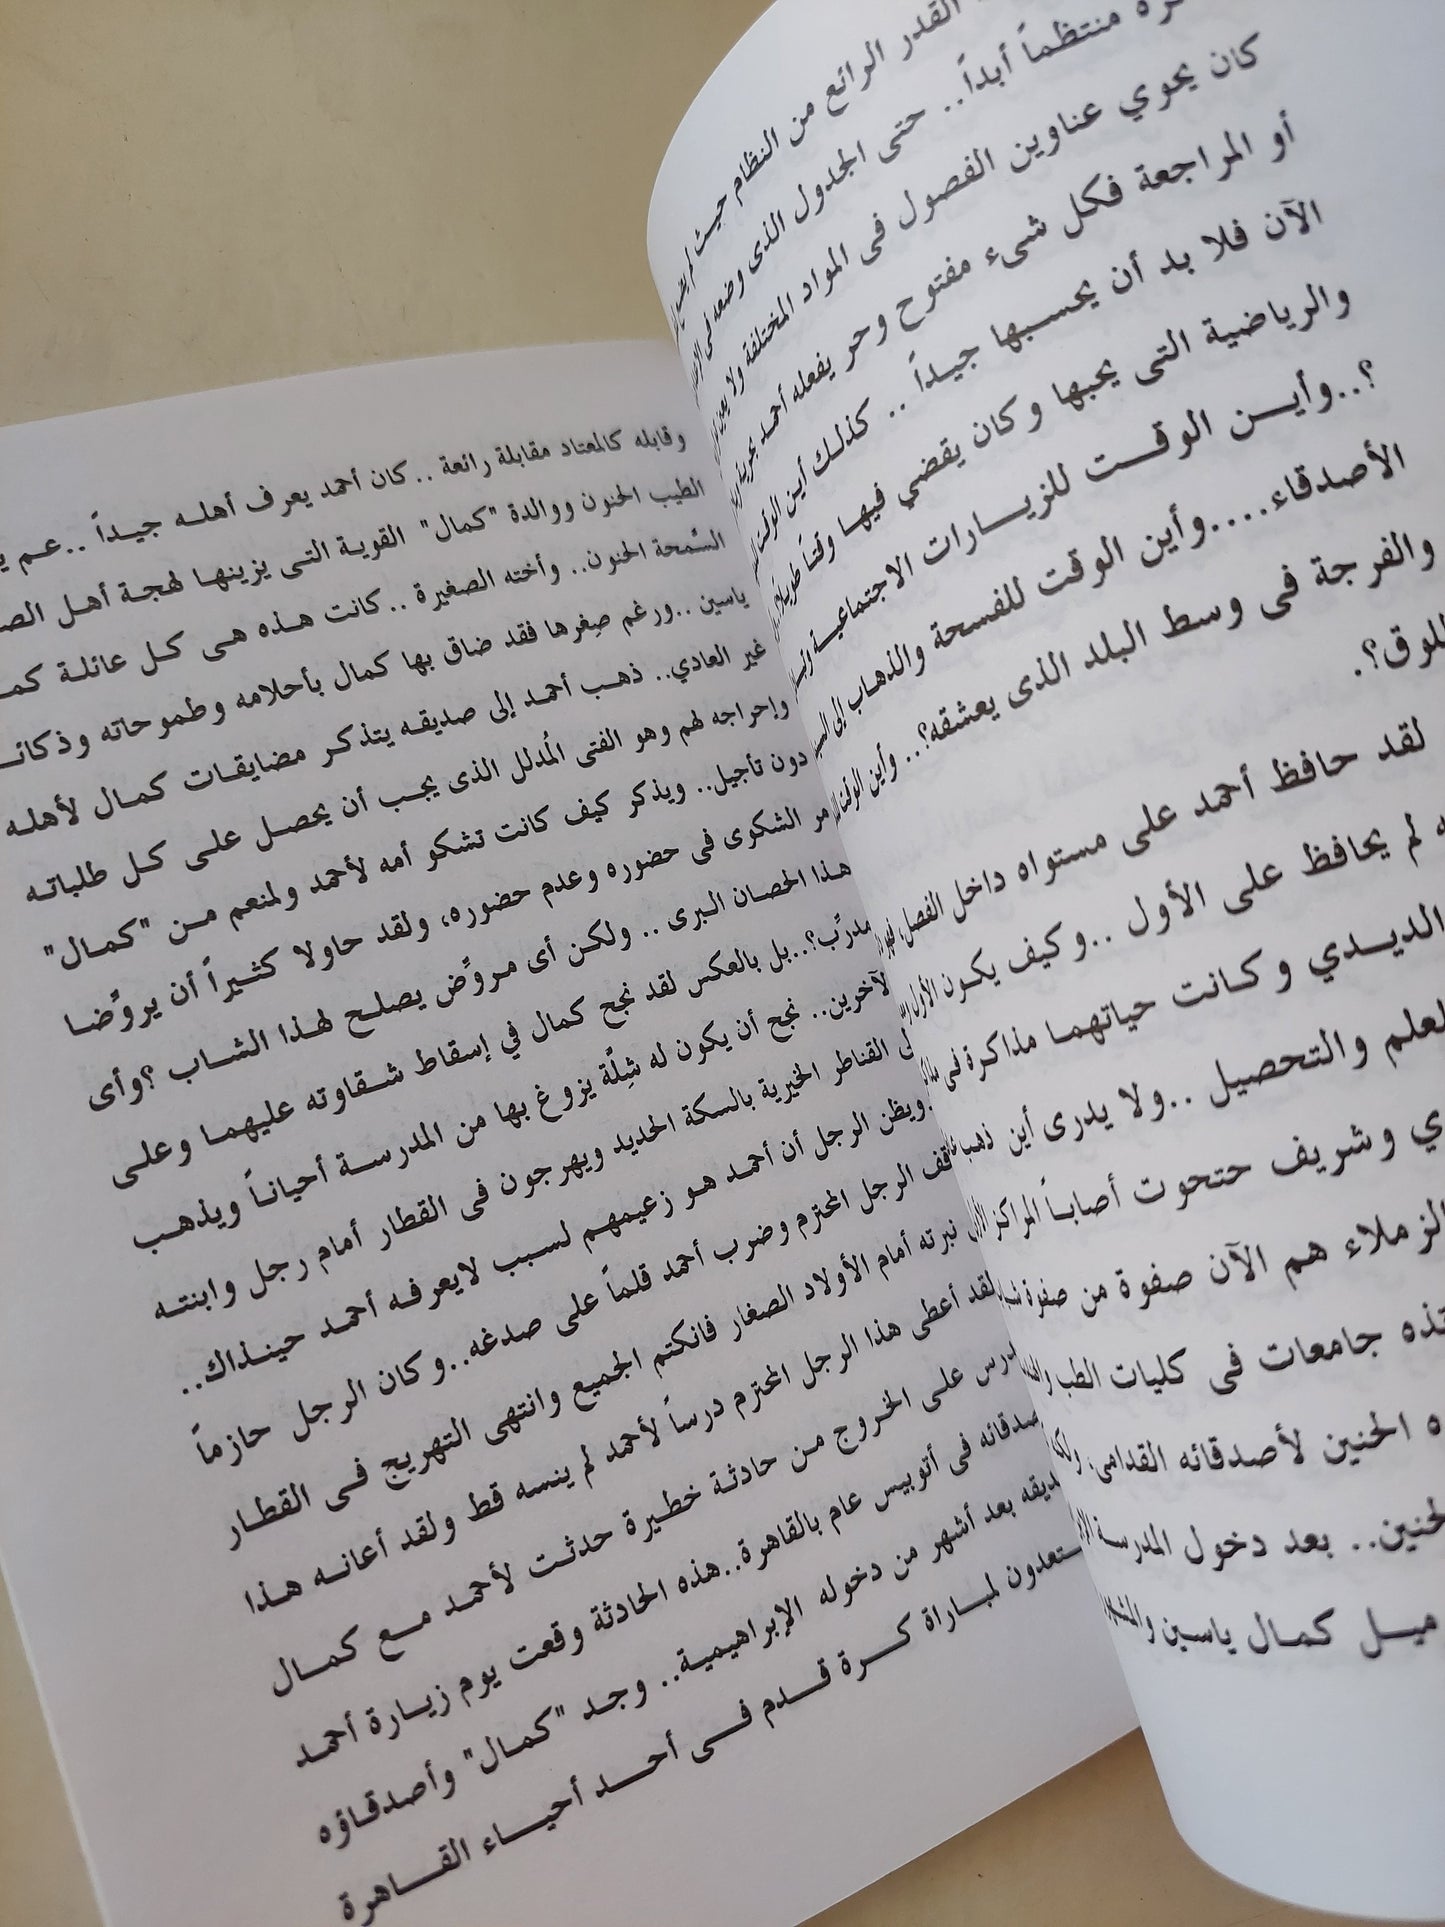 القدر الرائع من النظام حيث لم
منتظماً أبداً.. حتى الجدول الذى وضعه فى
كان يحوي عناوين الفصول فى المواد المختلفة ولا
أو المراجعة فكل شىء مفتوح وحر يفعله أحمد بحرية
الآن فلا بد أن يحسبها جيداً .. كذلك أين الوقت
والرياضية التى يحبها وكان يقضي فيها وقتاً طويلاً
؟..وأين الوقت للزيارات الاجتماعية
الأصدقاء....وأين الوقت للفسحة والذهاب إلى
والفرجة فى وسط البلد الذى يعشقه؟.. وأين الوقت
للوق؟.
لقد حافظ أحمد على مستواه داخل الفصل،
لم يحافظ على الأول ..وكيف يكون الأول
الديدي وكانت حياتهما مذاكرة فى
لعلم والتحصيل ..ولا يدرى أين ذهب
وشريف حتحوت أصابا المراكز
الزملاء هم الآن صفوة من صفوة
جامعات فى كليات الطب
الحنين لأصدقائه القدامى،
لحنين.. بعد دخول المدرسة
كمال ياسين
وقابله كالمعتاد مقابلة رائعة ..كان أحمد يعرف أهله جيداً ..عم
الطيب الحنون ووالدة "كمال" القوية التى يزينها لهجة أهل
السَّمحة الحنون.. وأخته الصغيرة ..كانت هذه هى كل عائلة
ياسين ..ورغم صِغرها فقد ضاق بها كمال بأحلامه وطموحاته
غير العادي.. ذهب أحمد إلى صديقه يتذكر مضايقات كمال لأهله
وإحراجه لهم وهو الفتى المُدلل الذى يجب أن يحصل على كل طلباته
دون تأجيل.. ويذكر كيف كانت تشكو أمه لأحمد ولمنعم من "كمال"
مر الشكوى فى حضوره وعدم حضوره، ولقد حاولا كثيراً أن يروِّضا
هذا الحصان البرى .. ولكن أى مروِّض يصلح لهذا الشاب ؟وأى
مدرِّب؟..بل بالعكس لقد نجح كمال في إسقاط شقاوته عليهما وعلى
لآخرين.. نجح أن يكون له شِلَّة يزوغ بها من المدرسة أحياناً ويذهب
القناطر الخيرية بالسكة الحديد ويهرجون فى القطار أمام رجل وابنته
ويظن الرجل أن أحمد هو زعيمهم لسبب لايعرفه أحمد حينذاك..
الرجل المحترم وضرب أحمد قلماً على صدغه..وكان الرجل حازماً
نبرته أمام الأولاد الصغار فانكتم الجميع وانتهى التهريج فى القطار
لقد أعطى هذا الرجل المحترم درساً لأحمد لم ينسه قط ولقد أعانه هذا
على الخروج من حادثة خطيرة حدثت لأحمد مع كمال
فى أتوبيس عام بالقاهرة..هذه الحادثة وقعت يوم زيارة أحمد
بعد أشهر من دخوله الإبراهيمية.. وجد "كمال" وأصدقاؤه
لمباراة كرة قدم فى أحد أحياء القاهرة